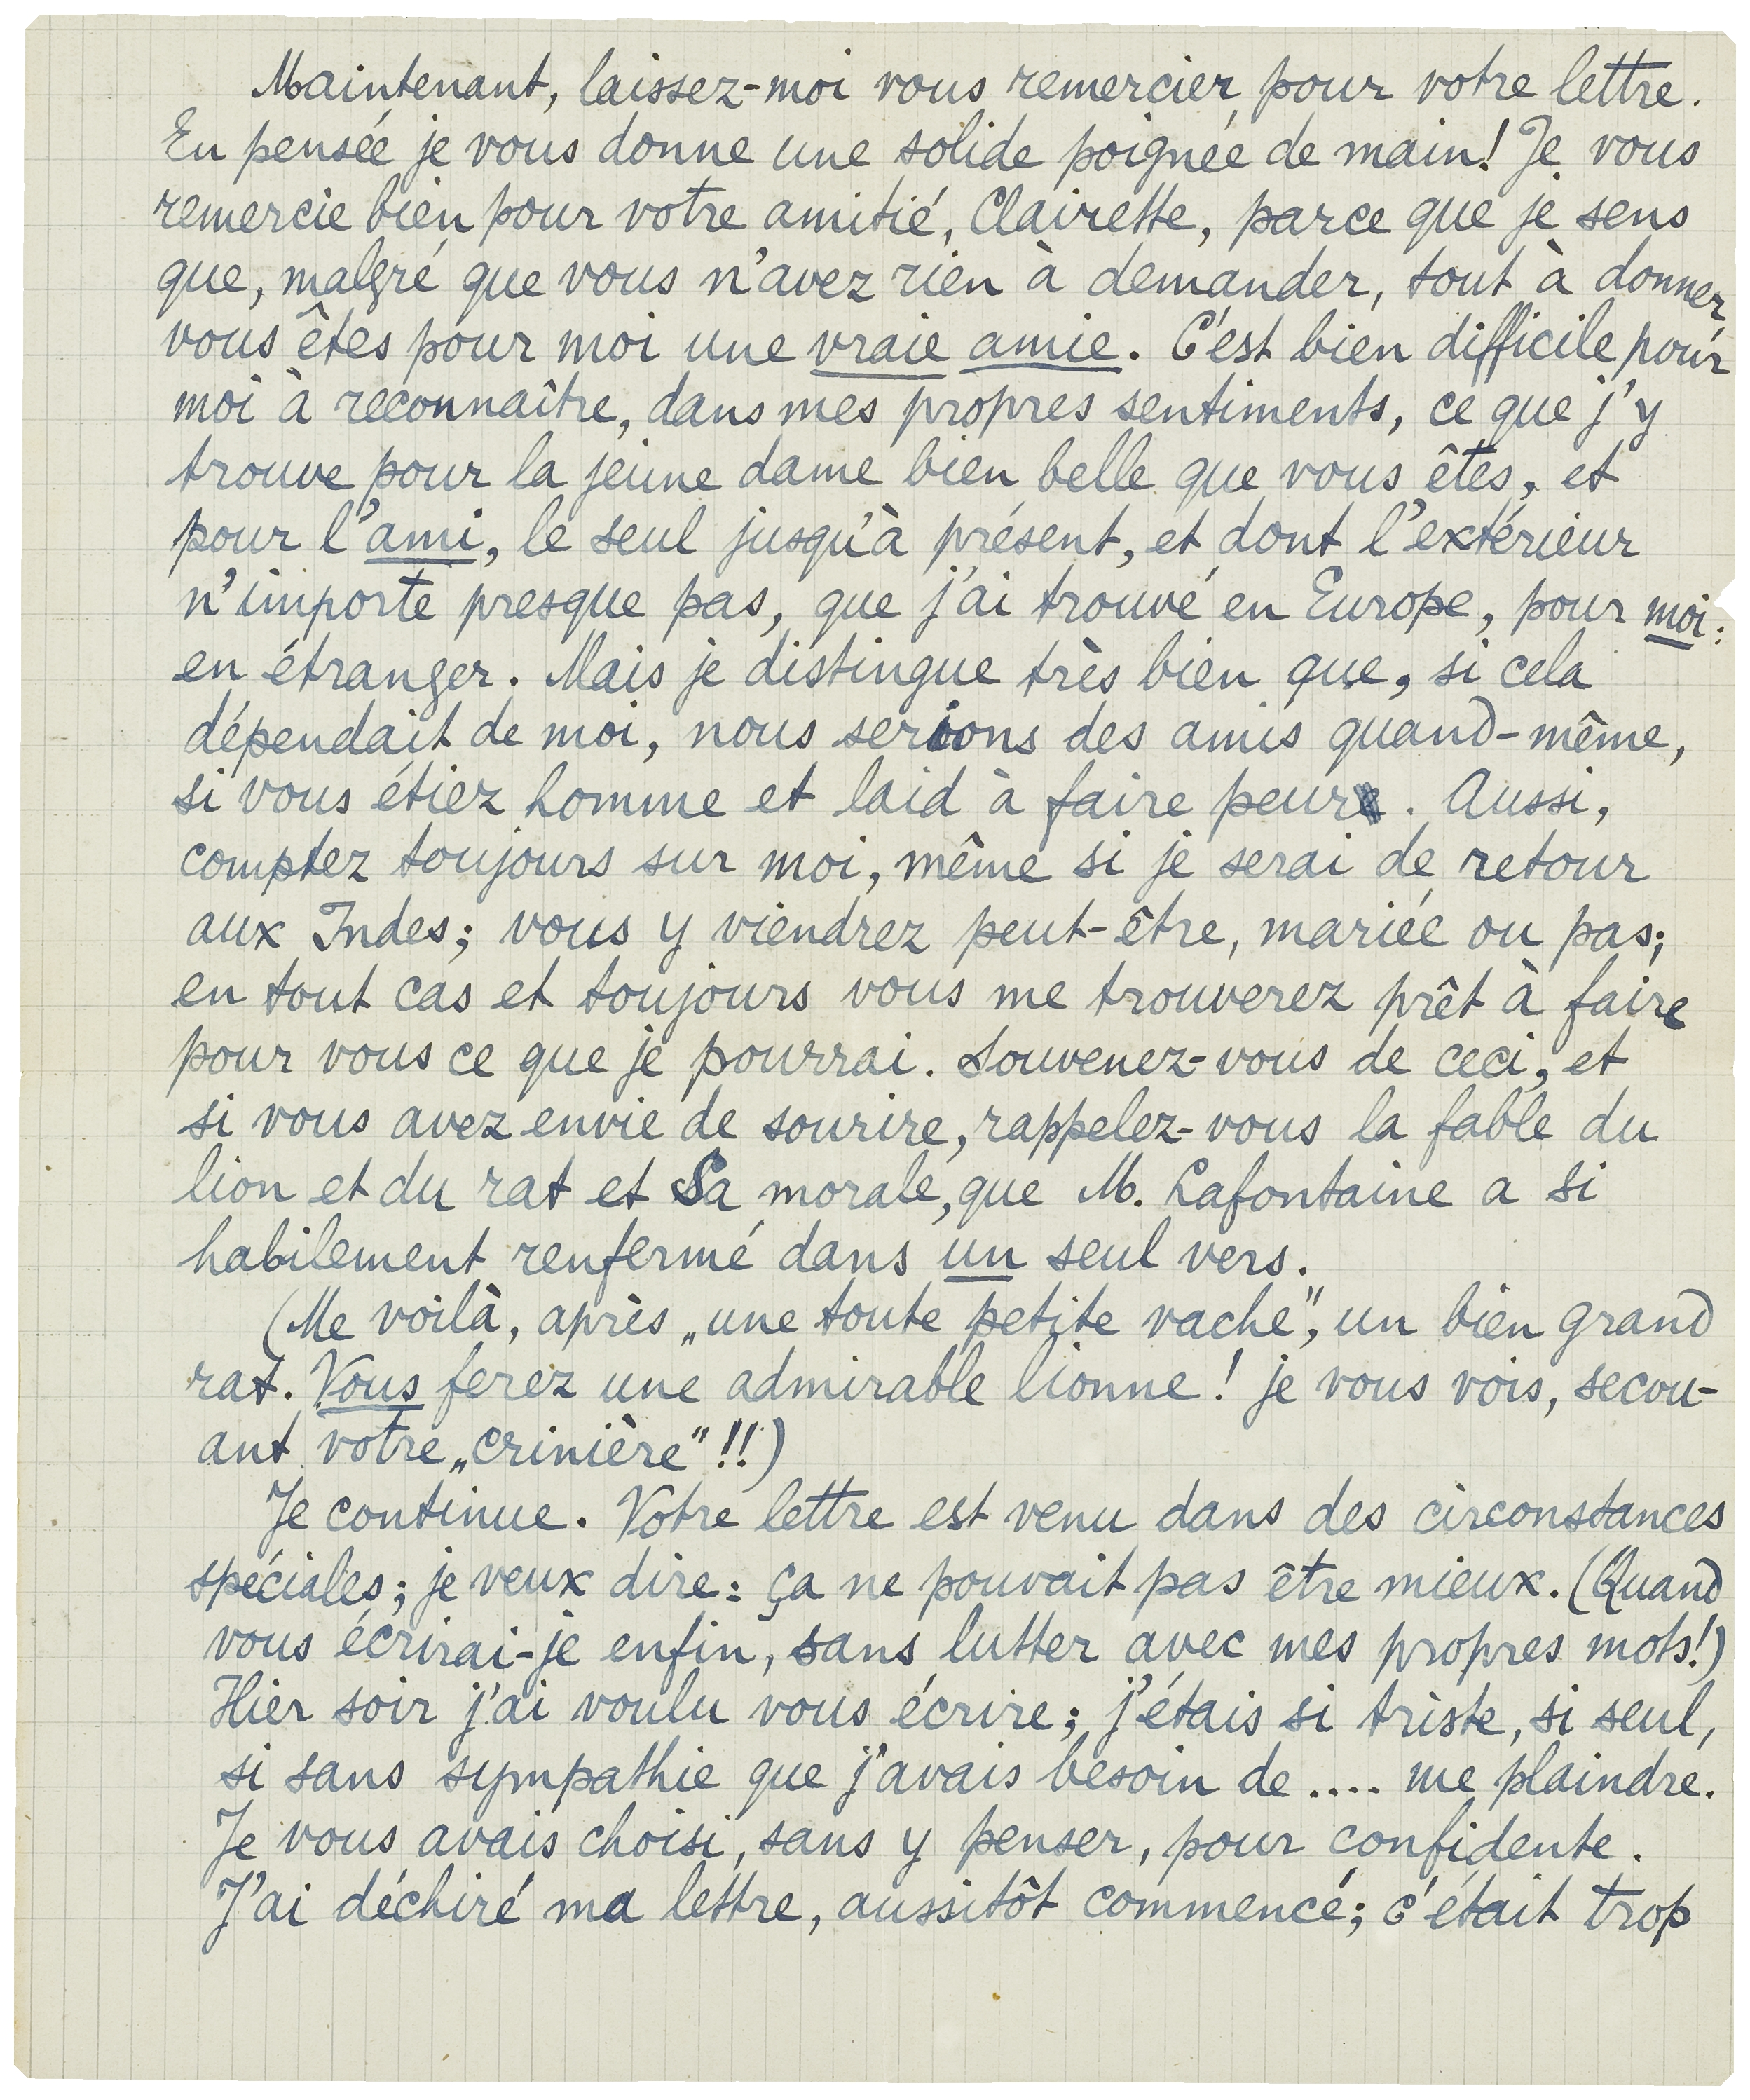 Maintenant, laissez-moi vous remercier pour votre lettre.
En pensée je vous donne une solide poignée de main! Je vous
remercie bien pour votre amitié, Clairette, parce que je sens
que, malgré que vous n'avez rien à demander, tout à donner
vous êtes pour moi une vraie amie. C'est bien difficile pour
moi à reconnaître, dans mes propres sentiments, ce que j'y
trouve pour la jeune dame bien belle que vous êtes, et
pour l'ami, le seul jusqu'à présent, et dont l'extérieur
n'importe presque pas, que j'ai trouvé en Europe, pour moi:
en étranger. Mais je distingue très bien que, si cela
dépendait de moi, nous serions des amis quand-même,
si vous étiez homme et laid à faire peur. Aussi,
comptez toujours sur moi, même si je serai de retour
aux Indes; vous y viendrez peut-être, mariée ou pas;
en tout cas et toujours vous me trouverez prêt à faire
pour vous ce que je pourrai. Souvenez-vous de ceci, et
si vous avez envie de sourire, rappelez-vous la fable du
lion et du rat et Sa morale, que M. Lafontaine a si
habilement renfermé dans un seul vers.
(Me voilà, après „une toute petite vache", un bien grand
rat. Vous ferez une admirable lionne! je vous vois, secou-
ant votre „crinière"!!)
Je continue. Votre lettre est venu dans des circonstances
spéciales; je veux dire: ça ne pouvait pas être mieux. (Quand
vous écrirai-je enfin, sans lutter avec mes propres mots!)
Hier soir j'ai voulu vous écrire; j'étais si triste, si seul,
si sans sympathie que j'avais besoin de .... me plaindre.
Je vous avais choisi, sans y penser, pour confidente.
J'ai déchiré ma lettre, aussitôt commencé; c'était trop